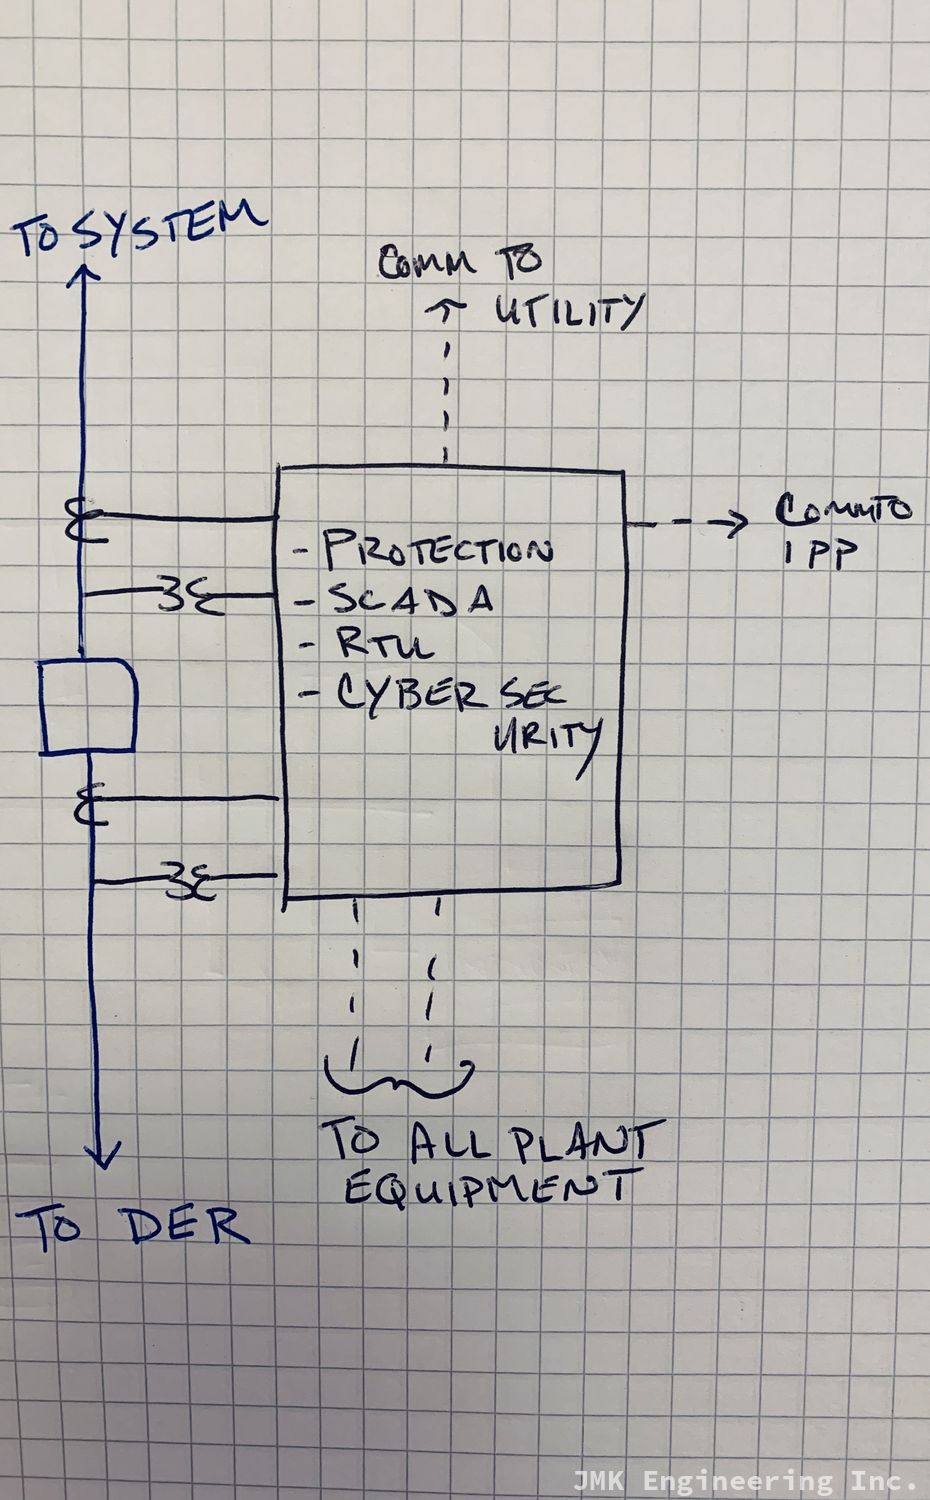 TO SYSTEM
COMM TO
UTILITY
COMM TO
IPP
- PROTECTION
- SCADA
- RTU
- CYBER SEC
URITY
TO ALL PLANT
EQUIPMENT
TO DER
JMK Engineering Inc.